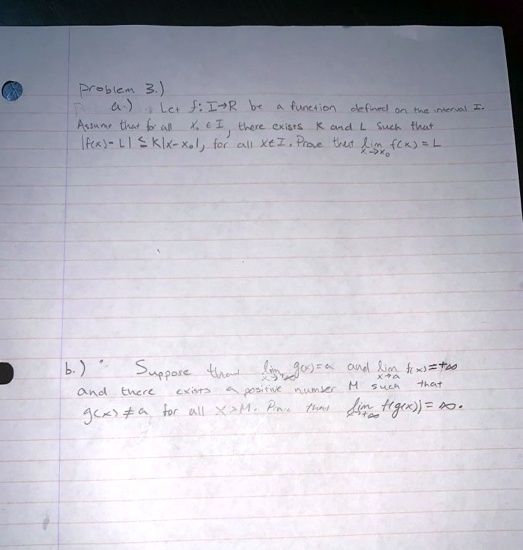 Problem 3.)
a.) Let f: I→R be a function defined on the interval I.
Assume that for all x₀ ∈ I, there exists K and L such that
|f(x) - L| ≤ K|x-x₀|, for all x∈I. Prove that lim x→x₀ f(x) = L
b.) Suppose that lim x→+∞ g(x)=a and lim x→a f(x)=+∞
and there exists a positive number M such that
g(x) ≠ a for all x>M. that lim x→+∞ f(g(x)) = ∞.